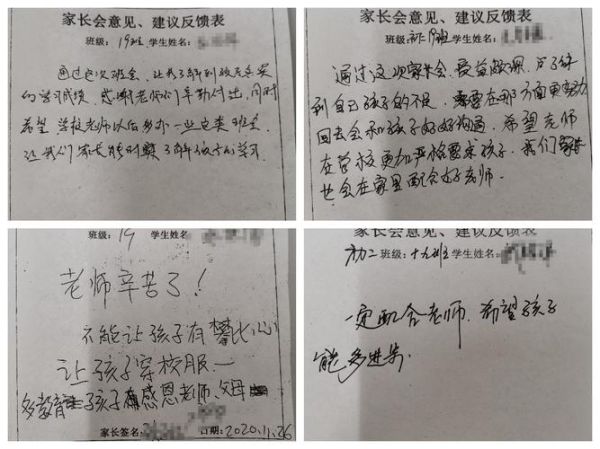 家长会意见、建议反馈表
班级：19班 学生姓名：
通过这次班会，让我了解到孩子在校
的学习成绩，感谢老师们辛勤付出，同时
希望学校老师以后多办一些这类班会，
让我们家长能时时了解孩子的学习。
家长会意见、建议反馈表
班级：初二19班 学生姓名：
通过这次家长会，受益颇深，了解
到自己孩子的不足，需要在哪方面更努力
回去会和孩子好好沟通，希望老师
在学校更加严格要求孩子，我们家长
也会在家里配合好老师。
家长会意见、建议反馈表
班级：19 学生姓名
老师辛苦了！
不能让孩子有攀比心
让孩子穿校服
多教育孩子有感恩老师、父母
家长签名： 日期：2020.11.26
家长会意见、建议反馈表
初二 班级：十九班 学生姓名：
一定配合老师，希望孩子
能多进步.